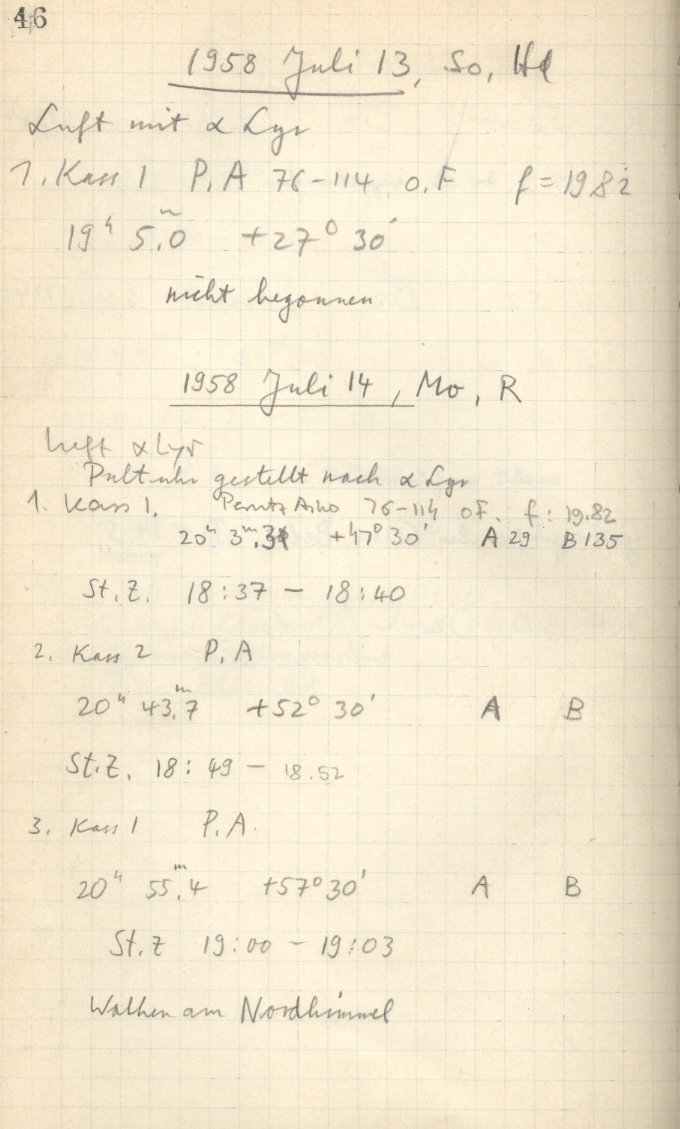 46
1958 Juli 13, So, Hl
Luft mit α Lyr
1. Kass 1 P.A 76-114 o.F f = 19.82
19ʰ 5ᵐ.0 +27° 30'
nicht begonnen
1958 Juli 14, Mo, R
Luft α Lyr
Pultuhr gestellt nach α Lyr
1. Kass 1. Perutz Astro 76-114 oF. f: 19.82
20ʰ 3ᵐ. +47° 30' A 29 B 135
St.Z. 18:37 - 18:40
2. Kass 2 P.A
20ʰ 43ᵐ.7 +52° 30' A B
St.Z. 18:49 - 18.52
3. Kass 1 P.A.
20ʰ 55ᵐ.4 +57° 30' A B
St.Z 19:00 - 19:03
Wolken am Nordhimmel